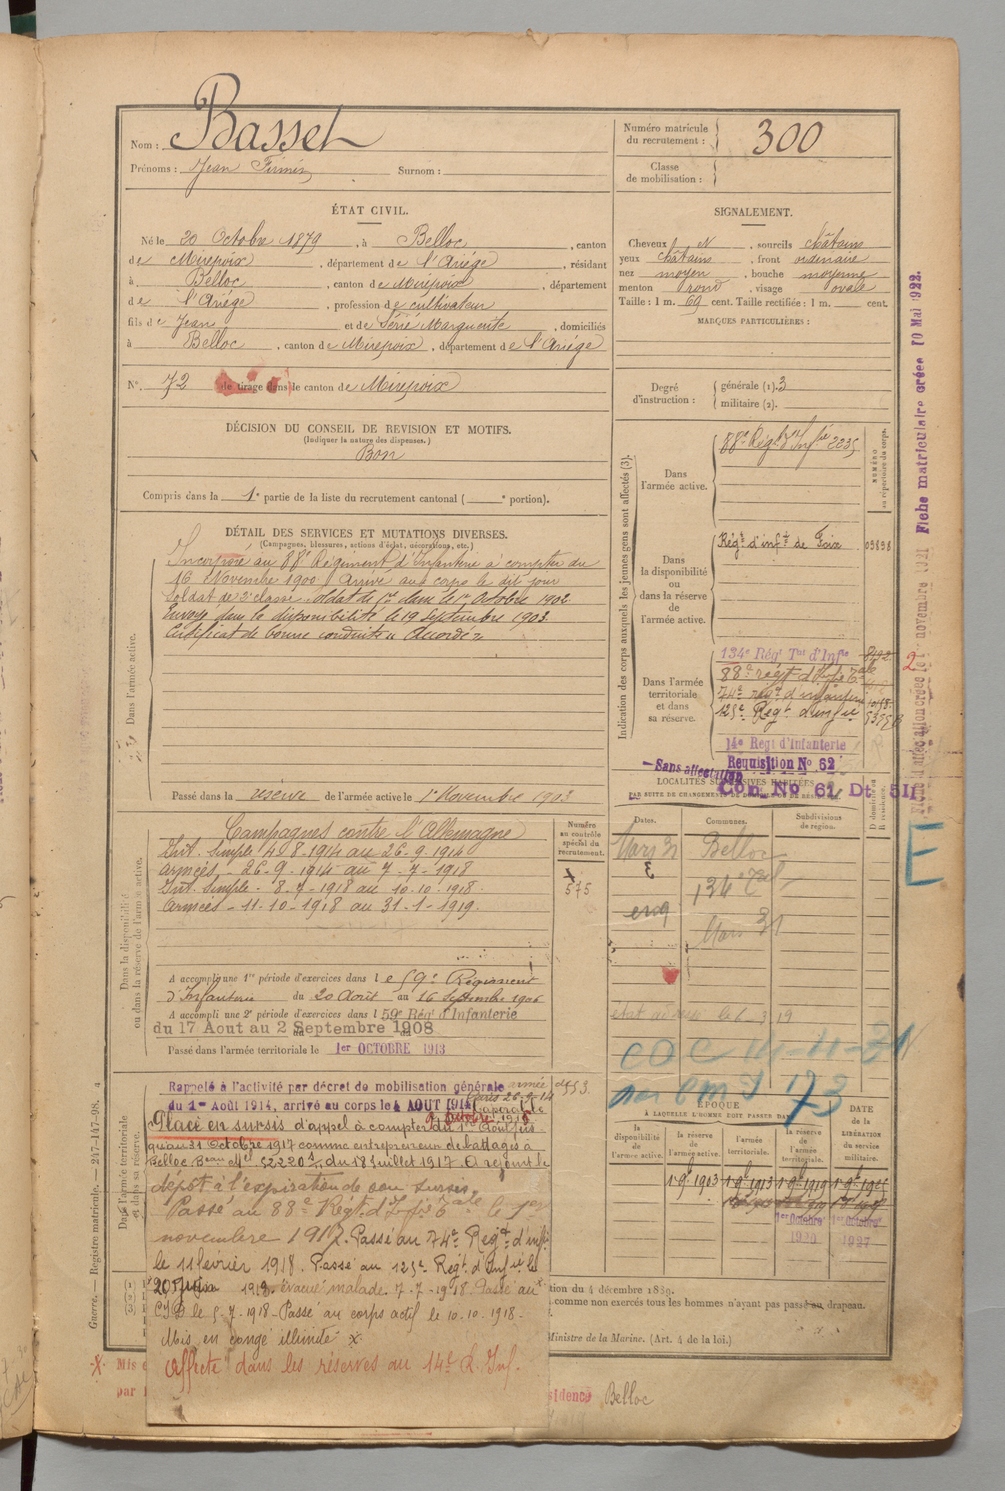 Nom : Basset
Prénoms : Jean Firmin Surnom :
Numéro matricule du recrutement : 300
Classe de mobilisation :
ÉTAT CIVIL.
Né le 20 Octobre 1879, à Belloc, canton
de Mirepoix, département de l'Ariége, résidant
à Belloc, canton de Mirepoix, département
de l'Ariége, profession de cultivateur
fils de Jean et de Sérié Marguerite, domiciliés
à Belloc, canton de Mirepoix, département de l'Ariége
N° 72 de tirage dans le canton de Mirepoix
SIGNALEMENT.
Cheveux N, sourcils châtains
yeux châtains, front ordinaire
nez moyen, bouche moyenne
menton rond, visage ovale
Taille : 1 m. 69 cent. Taille rectifiée : 1 m. cent.
MARQUES PARTICULIÈRES :
Degré d'instruction : générale (1). 3
militaire (2).
DÉCISION DU CONSEIL DE REVISION ET MOTIFS.
(Indiquer la nature des dispenses.)
Bon
Compris dans la 1e partie de la liste du recrutement cantonal ( e portion).
DÉTAIL DES SERVICES ET MUTATIONS DIVERSES.
(Campagnes, blessures, actions d'éclat, décorations, etc.)
Dans l'armée active.
Incorporé au 88e Régiment d'Infanterie à compter du
16 Novembre 1900. Arrivé au corps le dit jour
Soldat de 2e classe. Soldat de 1re classe le 1er Octobre 1902.
Envoyé dans la disponibilité le 19 Septembre 1903.
Certificat de bonne conduite "Accordé"
Passé dans la réserve de l'armée active le 1er Novembre 1903
Indication des corps auxquels les jeunes gens sont affectés (3).
NUMÉRO au répertoire du corps.
Dans l'armée active.
88e Régt d'Infie 2235
Dans la disponibilité ou dans la réserve de l'armée active.
Régt d'inft de Foix 03838
Dans l'armée territoriale et dans sa réserve.
134e Régt Tal d'Infie
88e régt d'Infie Tale
74e régt d'infanterie
125e Régt d'infie
14e Régt d'Infanterie
Requisition N° 62
Sans affectation
Con. No 61 Dt 5II
LOCALITÉS SUCCESSIVES HABITÉES
PAR SUITE DE CHANGEMENTS DE DOMICILE OU DE RÉSIDENCE.
Dates. Communes. Subdivisions de région.
Mars 31 Belloc
134e Tal
Mars 31
Dans la disponibilité ou dans la réserve de l'armée active.
Campagnes contre l'Allemagne
Int. simple 4-8-1914 au 26-9-1914
armées - 26-9-1914 au 7-7-1918
Int. simple - 8-7-1918 au 10-10-1918.
armées - 11-10-1918 au 31-1-1919.
Numéro au contrôle spécial du recrutement.
575
A accompli une 1re période d'exercices dans le 59e Régiment
d'Infanterie du 20 Août au 16 Septembre 1906
A accompli une 2e période d'exercices dans l 59e Rég d'Infanterie
du 17 Aout au 2 Septembre 1908
Passé dans l'armée territoriale le 1er OCTOBRE 1913
Dans l'armée territoriale et dans sa réserve.
Rappelé à l'activité par décret de mobilisation générale
du 1er Août 1914, arrivé au corps le 4 AOUT 1914
Placé en sursis d'appel à compter du 1er Août jus-
qu'au 31 Octobre 1917 comme entrepreneur de battages à
Belloc. Beau Mre 52220 du 18 Juillet 1917. A rejoint le
dépôt à l'expiration de son sursis.
Passé au 88e Régt d'Infie Tale le 1er
novembre 1917. Passé au 74e Régt d'infie
le 11 février 1918. Passé au 125e Régt d'Infie le
20 Juin 1918. évacué malade 7-7-1918 Passé au
CID le 5-7-1918 - Passé au corps actif le 10.10.1918.
Mis en congé illimité x
Affecté dans les réserves au 14e R. Inf.
COC 14-4-31
173
ÉPOQUE
À LAQUELLE L'HOMME DOIT PASSER DANS
la disponibilité de l'armée active.
la réserve de l'armée active.
l'armée territoriale.
la réserve de l'armée territoriale.
DATE DE LA LIBÉRATION du service militaire.
1er 8bre 1903
1er Octobre 1920
1er Octobre 1927
tion du 4 décembre 1889.
comme non exercés tous les hommes n'ayant pas passé au drapeau.
Ministre de la Marine. (Art. 4 de la loi.)
Mis e
par
sidence Belloc
Guerre. — Registre matricule. — 247-147-98.
Fiche matriculaire créée 10 Mai 1922.
E